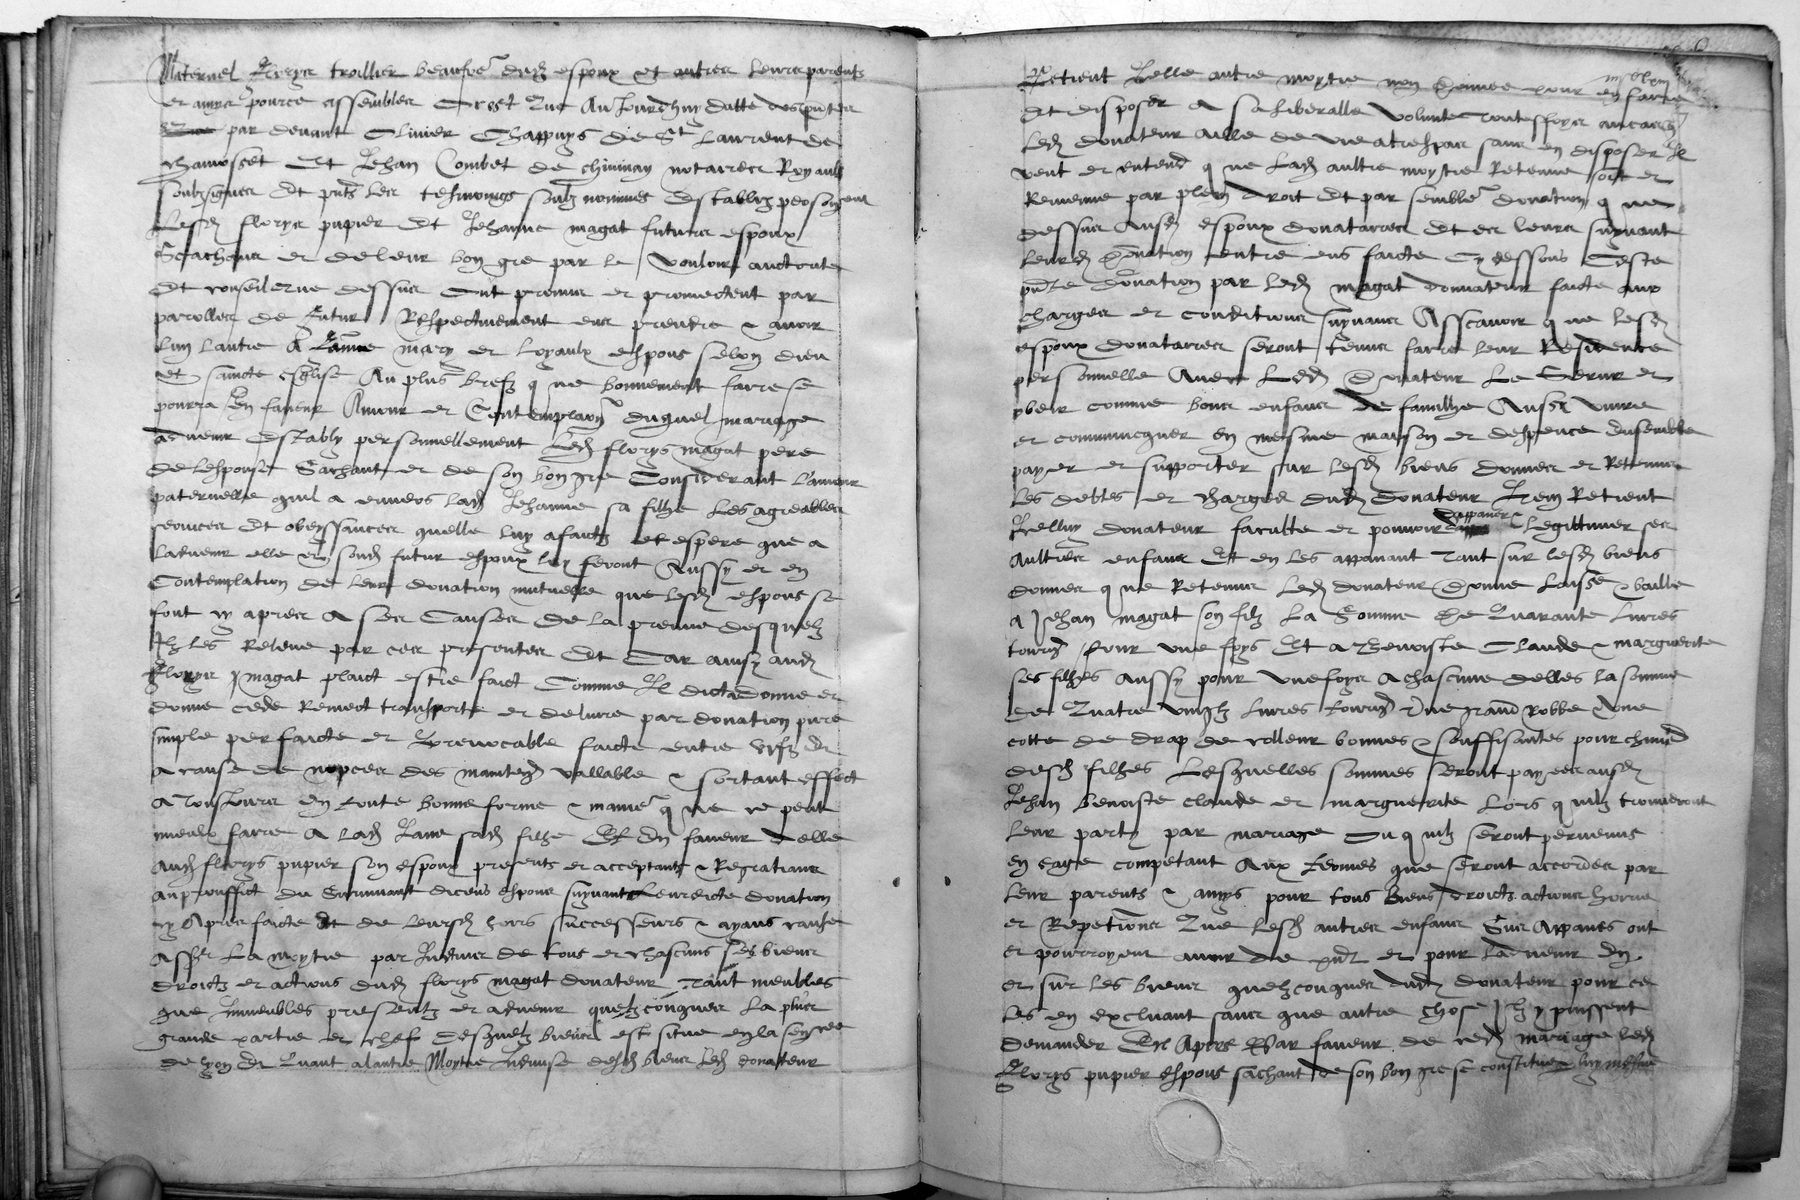 Maternel troillier beaufre dud espoux et autres leurs parents
et amys pource assembles Que Aujourdhuy datte des
par devant Olivier Chappuys de St Laurent de
chamosset Et Jehan Combet de notaires Royaulx
soubzsignes Et les tesmoings soubz nommes Establys
Lesd florys pupier Et Jehanne magat futurs espoux
Scachans et de leur bon gre par le vouloir auctorite
Et conseil que dessus Ont promis et promectent par
parolles de futur Respectivement eux prendre & avoir
lun lautre a mary et loyaulx espous selon dieu
et saincte esglise Au plus brefz que bonnement faire se
pourra En faveur Amour et Contemplaon duquel mariage
advenir Estably personnellement Led florys magat pere
de lespouse Sachant et de son bon gre Considerant Lamour
paternelle quil a envers lad Jehanne sa filhe Les agreables
services Et obeyssances quelle luy a faictz et espere que a
ladvenir elle et sond futur espoux luy feront Aussy et en
Contemplation de leur donation mutuelle que lesd espous se
font cy apres A ses Causes De la preuve desquelz
Il les Releve par ces presentes Et Car ainsy aud
florys magat plaict estre faict Comme Il dict a Donne et
donne cede Remect transporte et delivre par donation pure
simple perfaicte et Irrevocable faicte entre vifz et
a cause de nopces des vallable & sortant effect
a tousjours En toute bonne forme & maniere que ce peut
mieulx faire A lad sad filhe Et En faveur delle
aud florys pupier son espoux presents et acceptants &
au prouffict du survivant diceus espous suyvant leurdicte donation
cy Apres faicte Et de leursd hoirs successeurs & ayans cause
Assr La moytie par Indivis de tous et chascuns ses biens
droictz et actions dud florys magat donateur Tant meubles
que Immeubles presentz et advenir quelzconques La plus
grande partie et chef desquelz biens est situe en la
de lyon Et Quant a lautre Moytie Indivise desd biens Led donateur
Retient Icelle autre moytie non Donnee pour en faire
Et disposer A sa liberalle volunte Toutesfoys
Led donateur alle de vie a trespas sans en disposer Il
veut et entend que Lad aultre moytie Retenue soit et
Revienne par plein droit Et par semble donation que
dessus Ausd espoux donataires Et es leurs suyvant
leurd Donation entre eus faicte Cy dessous Ceste
donation par led magat donnateur faicte aux
charges et conditions suyvans Asscavoir que lesd
espoux donataires seront tenus faire leur Residence
personnelle Avec Led Donateur Le Servir et
obeir comme bons enfans de familhe Aussi vivre
et communicquer en mesme maison et despence Ensemble
payer et supporter sur lesd biens donnes et Retenus
les debtes et charges dud Donateur Item Retient
Icelluy donateur faculte et pouvoir dappaner & legittimer ses
Aultres enfans Et en les appanant Tant sur lesd biens
donnes que Retenus Led donateur Donne Laisse & baille
a Jehan magat son filz La Somme De Quarante Livres
tournois pour une foys Et a Benoiste Claude & marguerite
ses filhes Aussy pour une foys A chascune delles la somme
de Quatre vingtz Livres tournois Une grand robbe & une
cotte de drap de colleur bonnes & souffisantes pour chascune
desd filhes Lesquelles sommes seront payees ausd
Jehan benoiste claude et marguerite Lors quilz trouveront
leur party par mariage Ou quilz seront pervenus
en eage competant Aux termes que seront accordes par
leur parents & amys pour tous biens droictz actions
et Repetions Que lesd autres enfans Sus Appanes ont
et pourroyent avoir de et pour ladvenir En
et sur les biens quelzconques dud donateur pour ce
les en excluant sans que autre chose Ilz y puissent
demander En Apres Par faveur de ced mariage led
florys pupier espous sachant de son bon gre se constitue luy mesme